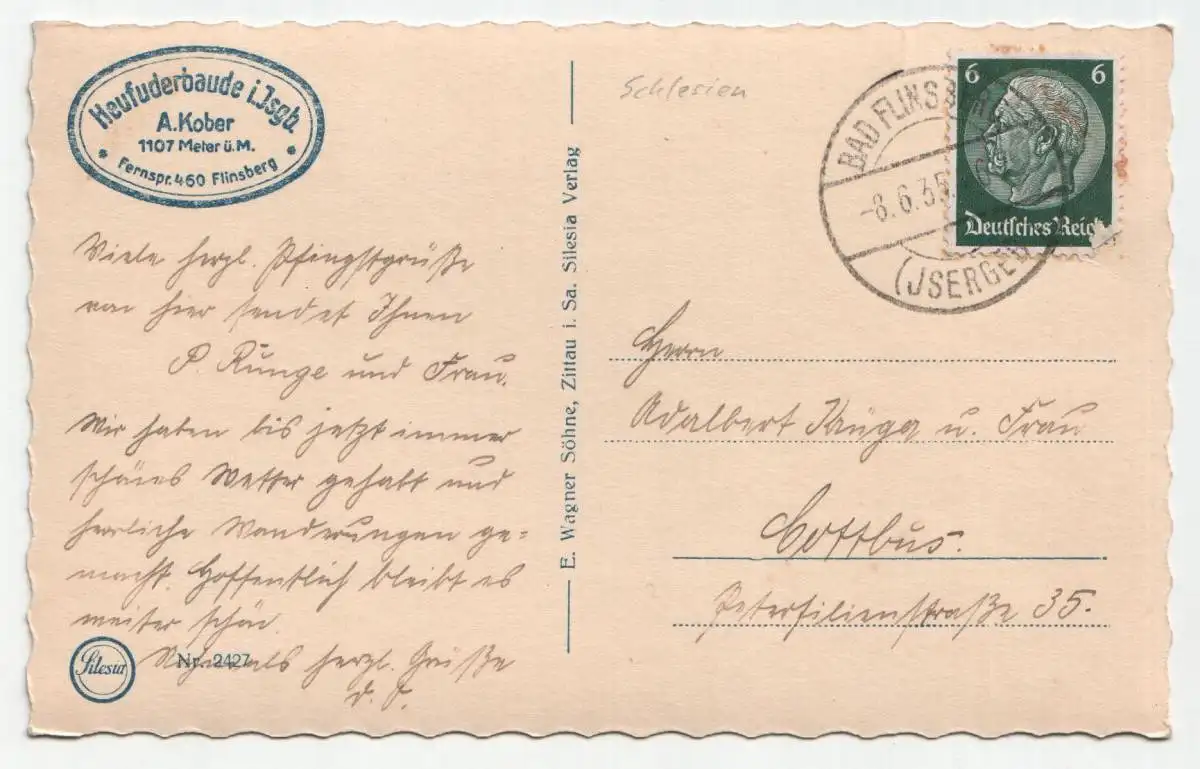 Heufuderbaude i.Jsgb.
A.Kober
1107 Meter ü.M.
Fernspr. 460 Flinsberg
Viele herzl. Pfingstgrüße
von hier sendet Ihnen
P. Runge und Frau.
Wir haben bis jetzt immer
schönes Wetter gehabt und
herrliche Wanderungen ge=
macht. Hoffentlich bleibt es
weiter schön.
Nochmals herzl. Grüße
D. O.
Silesia
Nr. 2427
E. Wagner Söhne, Zittau i. Sa. Silesia Verlag
Schlesien
BAD FLINSBERG
-8.6.35
(JSERGEB
6 6
Deutsches Reich
Herrn
Adalbert Krüger u. Frau
Cottbus.
Petersilienstraße 35.